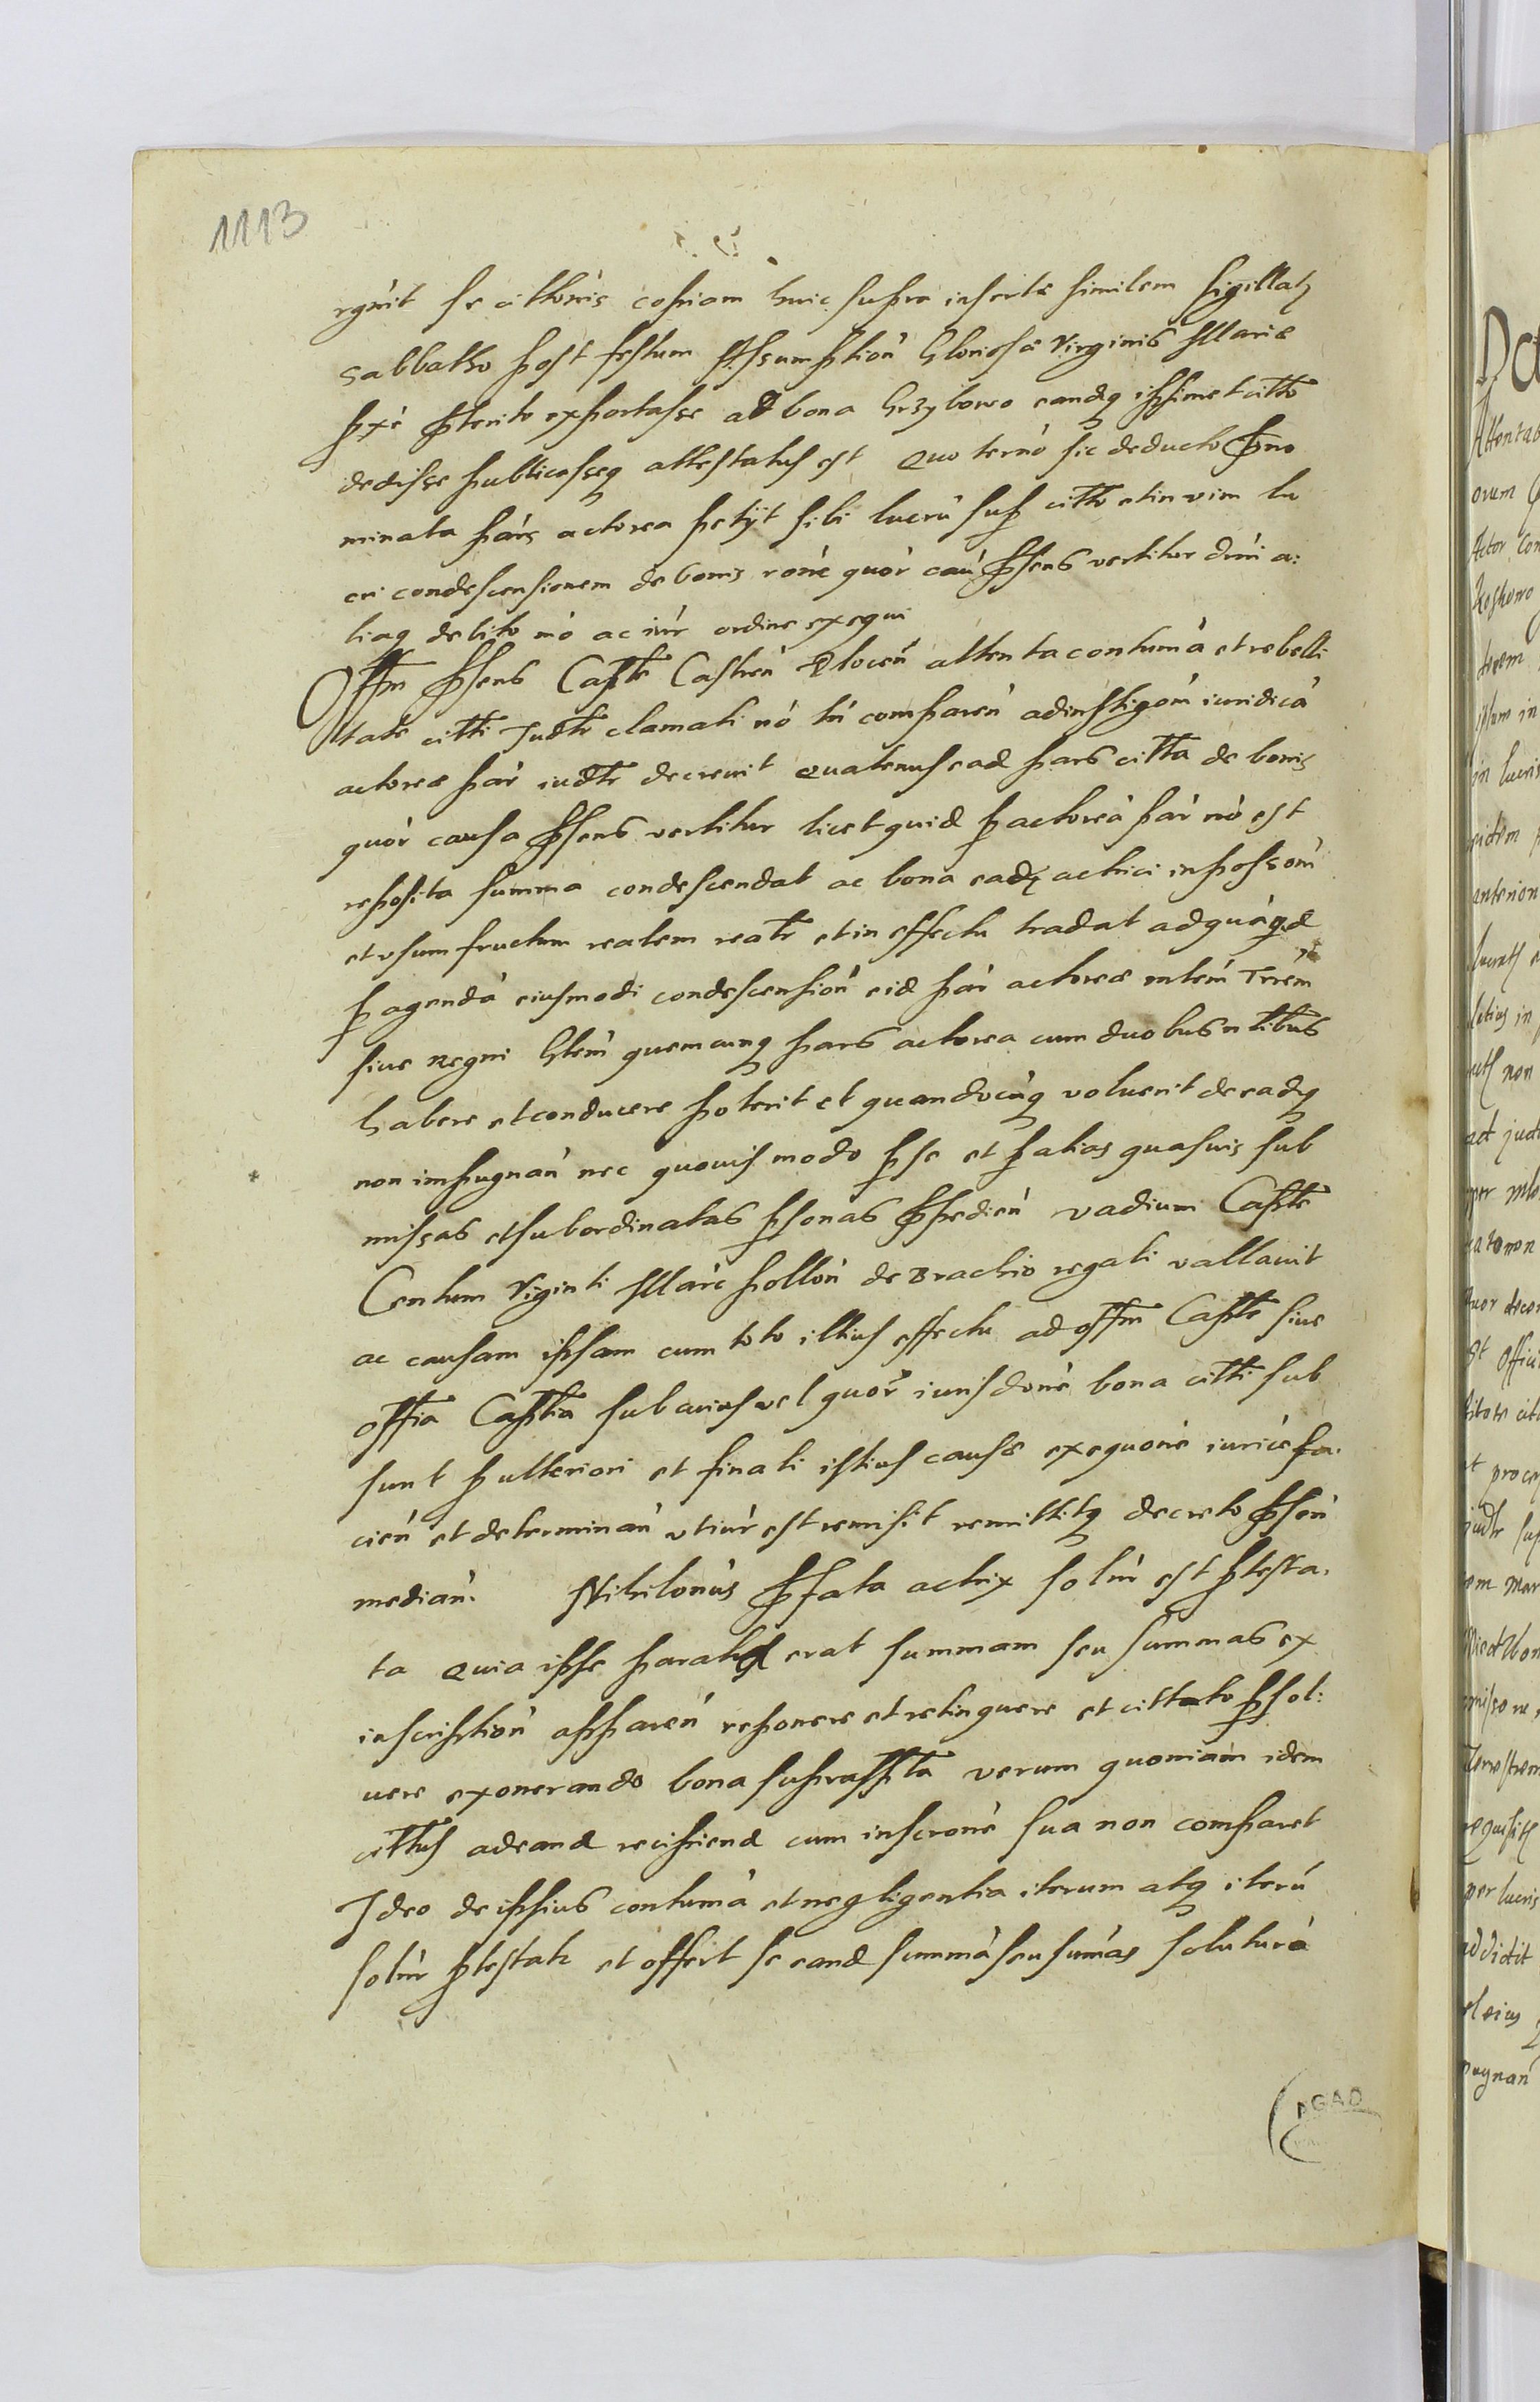 1113
rguit se cittonis copiam huic supra insertæ similem sigillatq
Sabbatho post festum Assumption Gloriosæ Virginis Mariæ
pxe pterito exportasse ad bona Grzybowo eandq ipsimet citto
dedisse publicasseq attestatus est Quo termo sic deducto pno
minata pars actorea petijt sibi lucru sup citto et in vim lu
cri condescensionem de bonis rone quor cau psens vertitur dni a:
liaq debito mo ac iur ordine exequi
Offm psens Capte Castren Plocen attenta contuma et rebelli
tate citti Judtr clamati no tn comparen ad instigom iuridica
actoreæ par iudtr decrevit Quatenus ead pars citta de bonis
quor causa psens vertitur licet quid p actorea par no est
reposita summa condescendat ac bona eadq actrici in possom
et usum fructum realem realr et in effectu tradat ad quaqd
p agenda eiusmodi condescension eid par actoreæ mlem Trem
sive Regni Glem quemcunq pars actorea cum duobus nltibus
habere et conducere poterit et quandocunq voluerit de eadq
non impugnan nec quovis modo p se et p alias quasvis sub
missas et subordinatas psonas ppedien vadium Capte
Centum Viginti Marc pollon de Brachio regali vallavit
ac causam ipsam cum toto illius effectu ad offm Capte sive
offia Captia sub cuius vel quor iurisdone bona citti sub
sunt p ulteriori et finali istius causæ exequone iurice fa.
cien et determinan uti iur est remisit remittitq decreto psen
median. Nihilomis pfata actrix solnr est ptesta.
ta Quia ipse parata erat summam seu summas ex
inscription apparen reponere et relinquere et cittato psol:
uere exonerando bona suprascpta verum quoniam idem
cittus ad eand recipiend cum inscrone sua non comparet
Ideo de ipsius contuma et negligentia iterum atq iteru
solnr ptestatr et offert se eand summa seu sumas solutura
AGAD